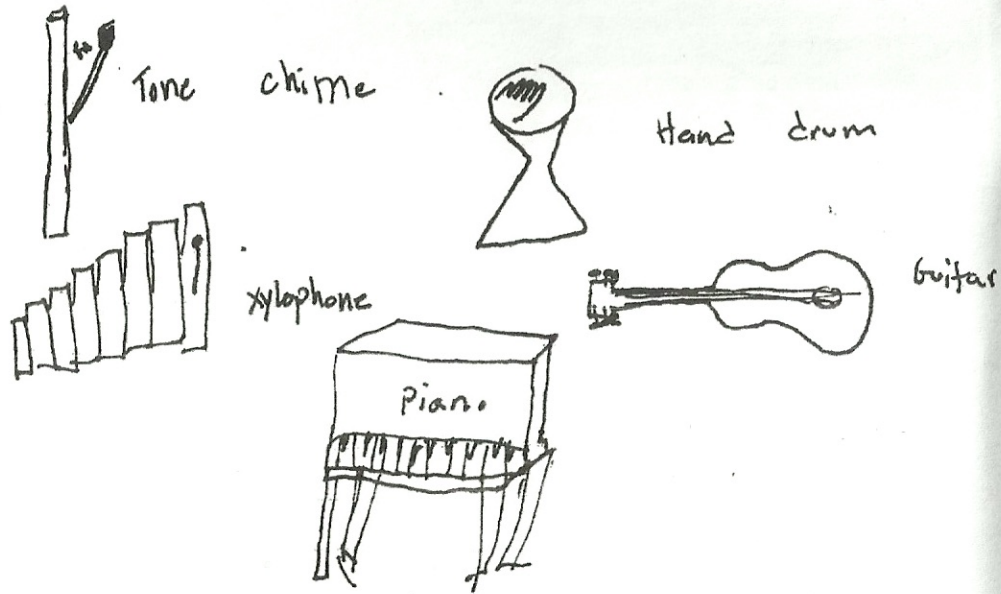 Tone chime
Hand drum
xylophone
Guitar
Piano